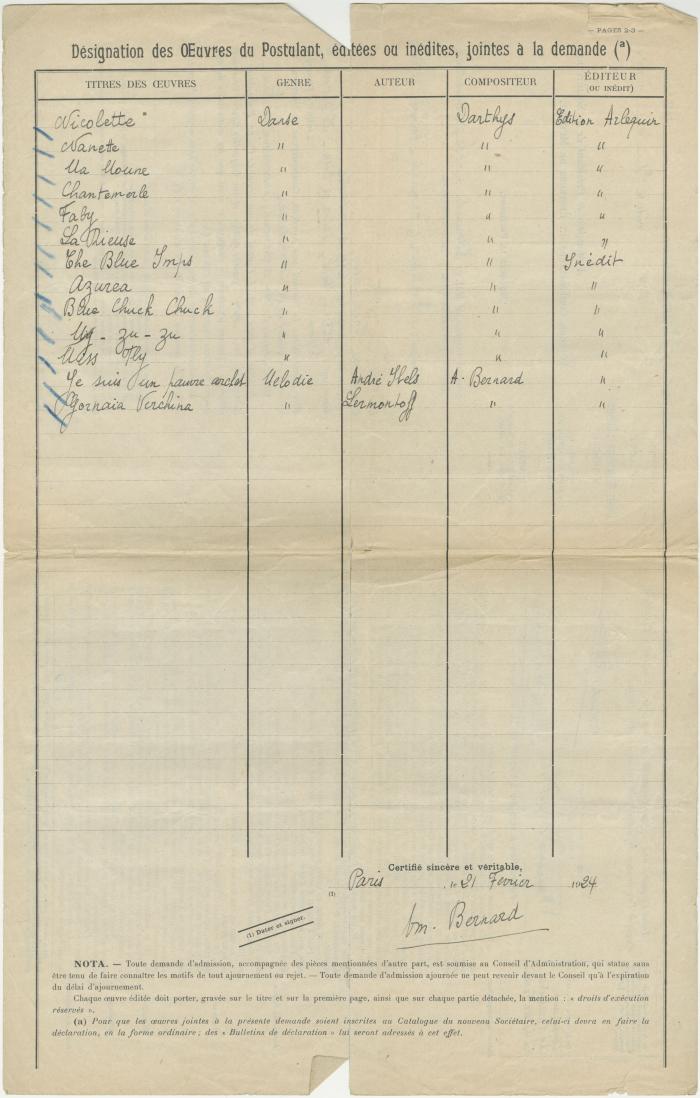 — PAGES 2-3 —
Désignation des Œuvres du Postulant, éditées ou inédites, jointes à la demande (a)
TITRES DES ŒUVRES GENRE AUTEUR COMPOSITEUR ÉDITEUR (OU INÉDIT)
Nicolette Danse Darthys Edition Arlequin
Nanette " " "
Ma Moune " " "
Chantemerle " " "
Faby " " "
La Rieuse " " "
The Blue Imps " " Inédit
Azurea " " "
Blue Chuck Chuck " " "
- zu - zu " " "
Miss Fly " " "
Je suis un pauvre archet Melodie André A. Bernard "
Gornaia Verchina " Lermontoff " "
Certifié sincère et véritable,
(1) Paris, le 21 Fevrier 1924
(1) Dater et signer.
Bernard
NOTA. — Toute demande d'admission, accompagnée des pièces mentionnées d'autre part, est soumise au Conseil d'Administration, qui statue sans
être tenu de faire connaître les motifs de tout ajournement ou rejet. — Toute demande d'admission ajournée ne peut revenir devant le Conseil qu'à l'expiration
du délai d'ajournement.
Chaque œuvre éditée doit porter, gravée sur le titre et sur la première page, ainsi que sur chaque partie détachée, la mention : « droits d'exécution
réservés ».
(a) Pour que les œuvres jointes à la présente demande soient inscrites au Catalogue du nouveau Sociétaire, celui-ci devra en faire la
déclaration, en la forme ordinaire ; des « Bulletins de déclaration » lui seront adressés à cet effet.